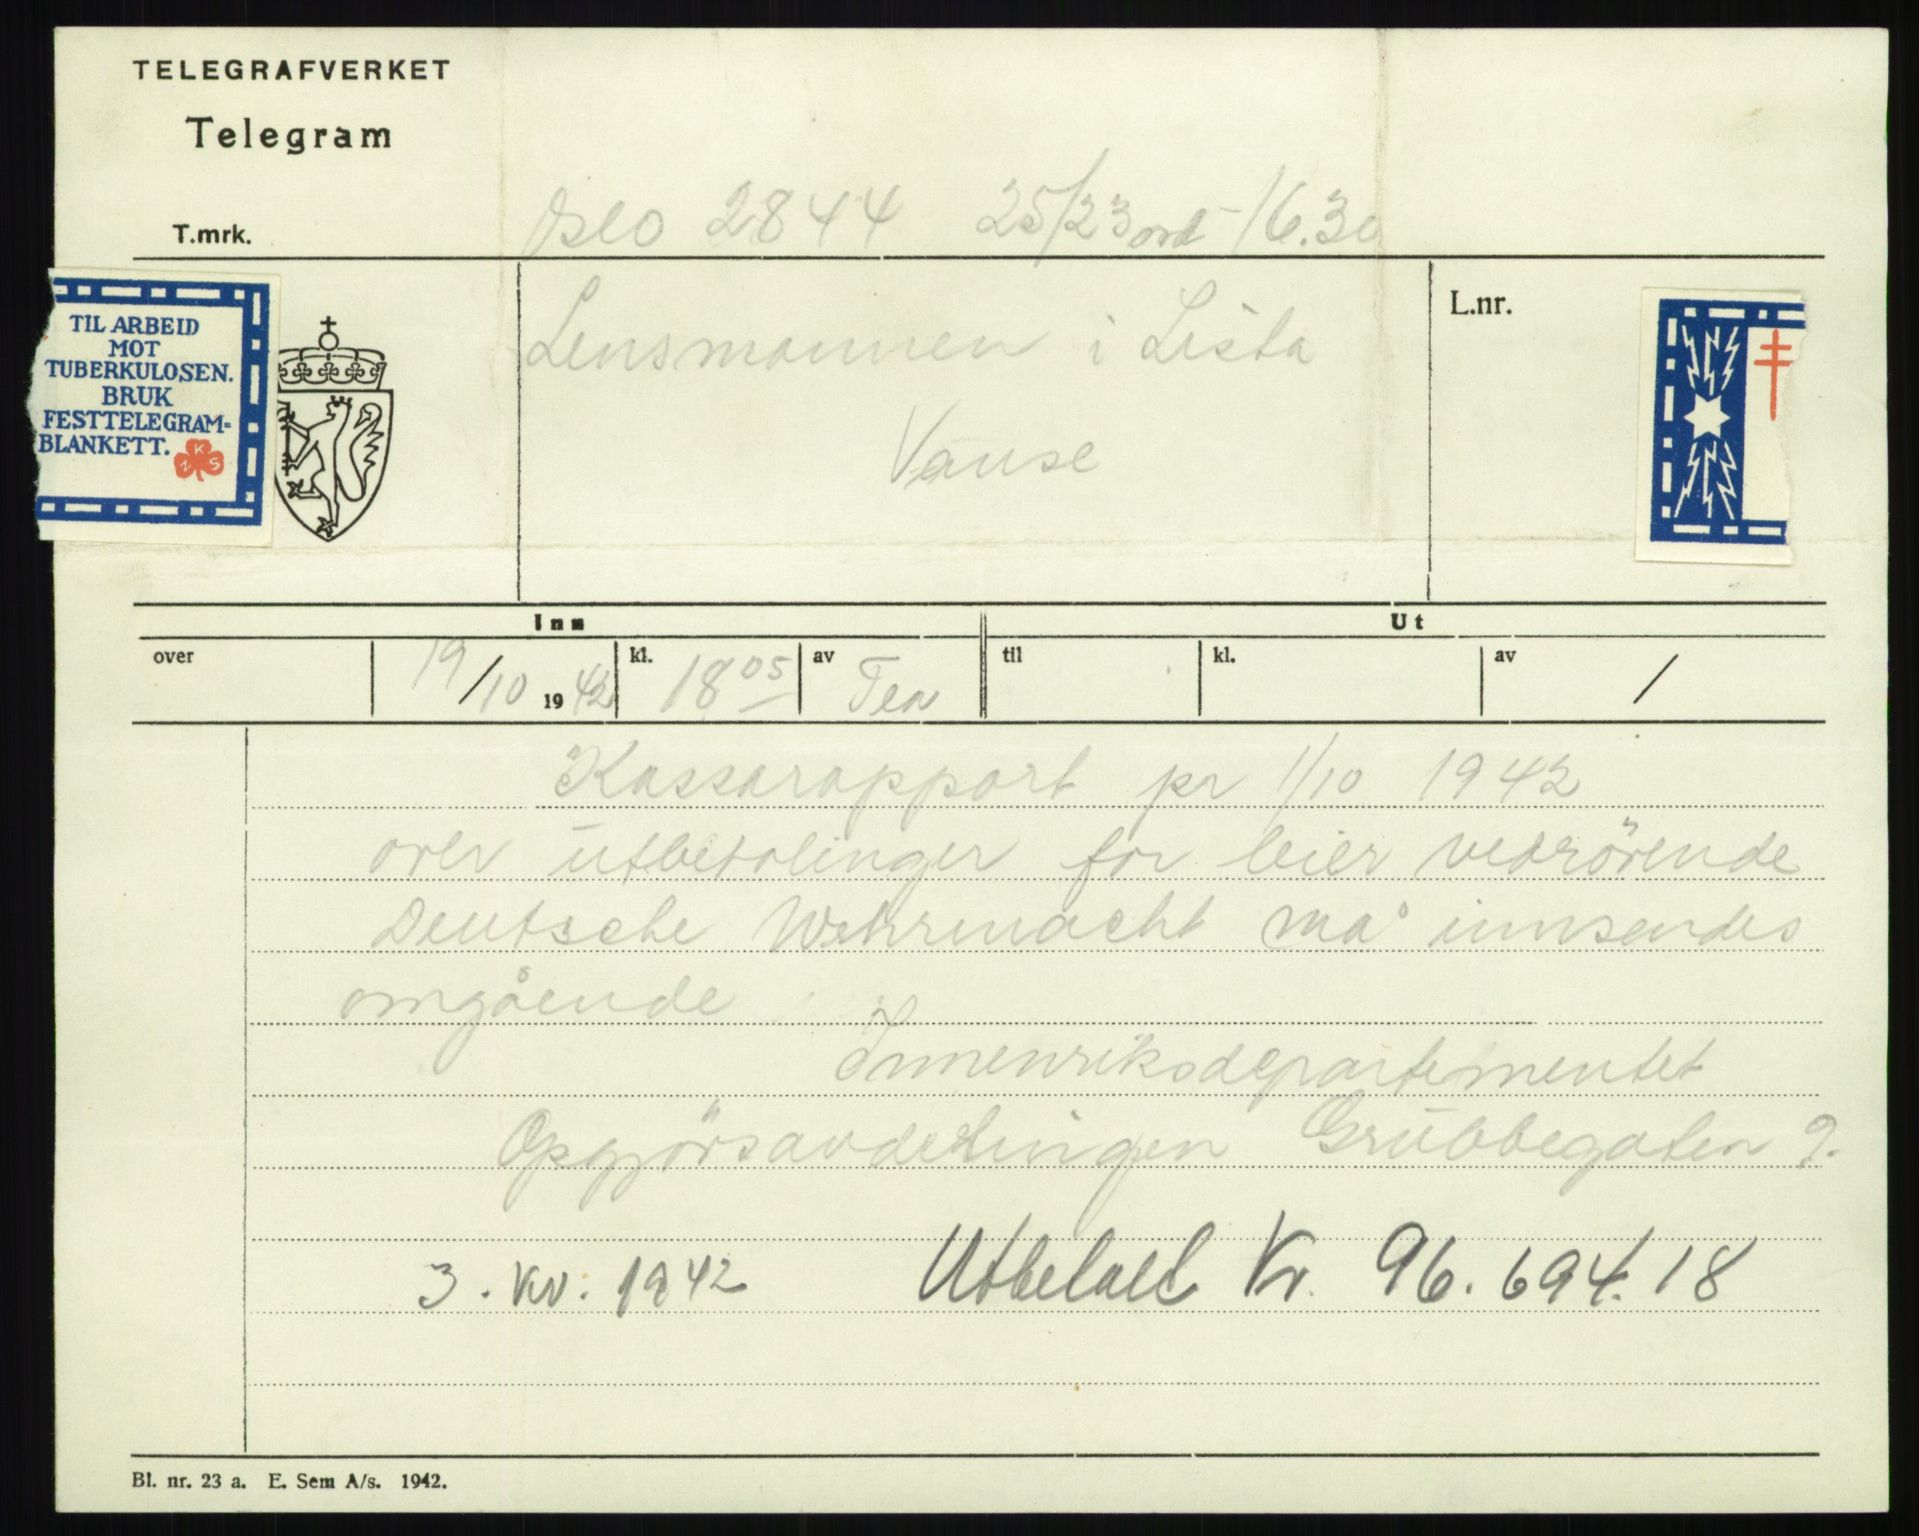 TELEGRAFVERKET
Telegram
T.mrk.
Oslo 2844 25/23 ord - 16.30
TIL ARBEID
MOT
TUBERKULOSEN.
BRUK
FESTTELEGRAM=
BLANKETT.
NKS
Lensmannen i Lista
Vanse
L.nr.
Inn
Ut
over 19/10 1942 kl. 18 05 av til kl. av /
Kassarapport pr 1/10 1942
over utbetalinger for leier vedrörende
Deutsche Wehrmacht må innsendes
omgående
Innenriksdepartementet
Opgjörsavdelingen Grubbegaten 9.
3. kv. 1942 Utbetalt Kr. 96.694.18
Bl. nr. 23 a. E. Sem A/s. 1942.